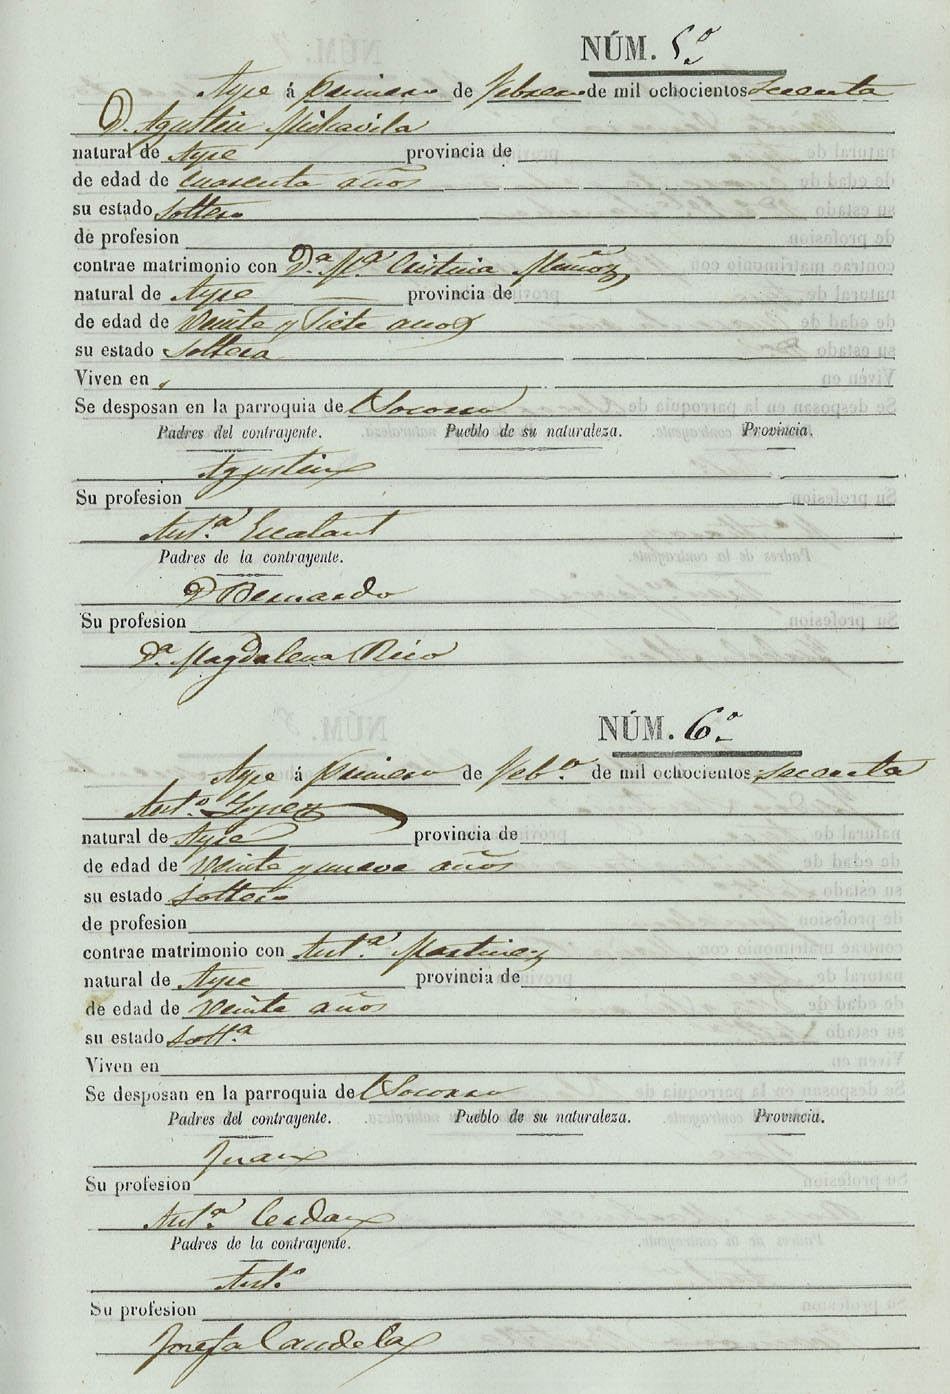 NÚM. 5º
Aspe á primero de Febrero de mil ochocientos sesenta
D. Agustin Miravila
natural de Aspe provincia de
de edad de cuarenta años
su estado Soltero
de profesion
contrae matrimonio con Dª Mª Cristina Muñoz
natural de Aspe provincia de
de edad de veinte y siete años
su estado Soltera
Viven en
Se desposan en la parroquia de Socorro
Padres del contrayente. Pueblo de su naturaleza. Provincia.
Agustin
Su profesion
Antª Escalant
Padres de la contrayente.
D Bernardo
Su profesion
Dª Magdalena Rico
NÚM. 6º
Aspe á primero de Febº de mil ochocientos sesenta
Antº Lopez
natural de Aspe provincia de
de edad de veinte y nueve años
su estado Soltero
de profesion
contrae matrimonio con Antª Martinez
natural de Aspe provincia de
de edad de veinte años
su estado Soltª
Viven en
Se desposan en la parroquia de Socorro
Padres del contrayente. Pueblo de su naturaleza. Provincia.
Juan
Su profesion
Antª Cerdan
Padres de la contrayente.
Antº
Su profesion
Josefa Candela